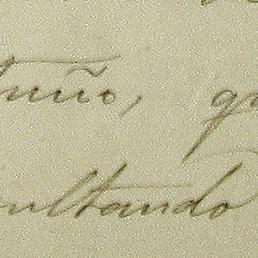 tuño, qu
sultando